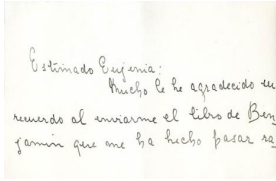 Estimado Eugenia:
Mucho le he agradecido su
recuerdo al enviarme el libro de Ben-
jamin que me ha hecho pasar ra-